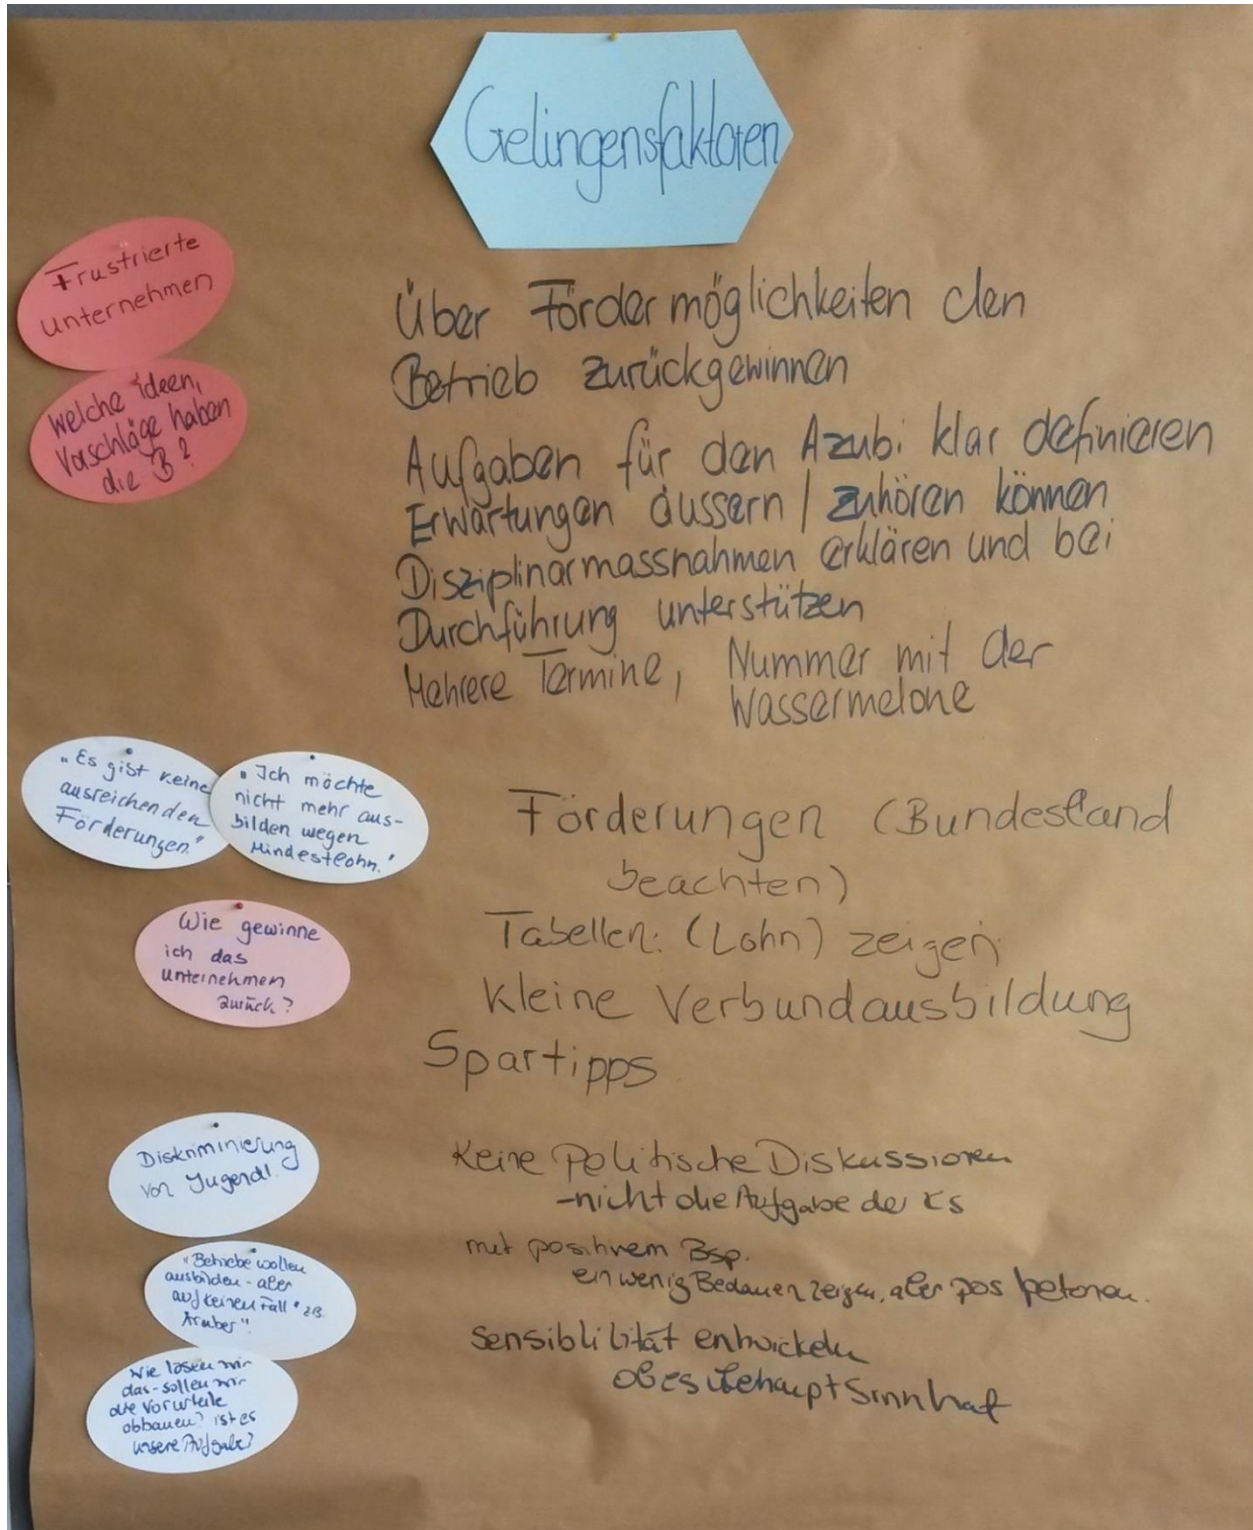 Gelingensfaktoren
Frustrierte
Unternehmen
Welche Ideen,
Vorschläge haben
die B?
Über Fördermöglichkeiten den
Betrieb zurückgewinnen
Aufgaben für den Azubi klar definieren
Erwartungen äussern / zuhören können
Disziplinarmassnahmen erklären und bei
Durchführung unterstützen
Mehrere Termine, Nummer mit der
Wassermelone
„Es gibt keine
ausreichenden
Förderungen."
„Ich möchte
nicht mehr aus-
bilden wegen
Mindestlohn."
Wie gewinne
ich das
Unternehmen
zurück?
Förderungen (Bundesland
beachten)
Tabellen: (Lohn) zeigen
Kleine Verbundausbildung
Spartipps
Diskriminierung
von Jugendl.
„Betriebe wollen
ausbilden - aber
auf keinen Fall" z.B.
Araber"
Wie lösen wir
das - sollen wir
die Vorurteile
abbauen? ist es
unsere Aufgabe?
Keine Politische Diskussionen
- nicht die Aufgabe der KS
mit positivem Bsp.
ein wenig Bedauen zeigen, aber pos betonen.
Sensiblilität entwickeln
ob es überhaupt Sinn hat